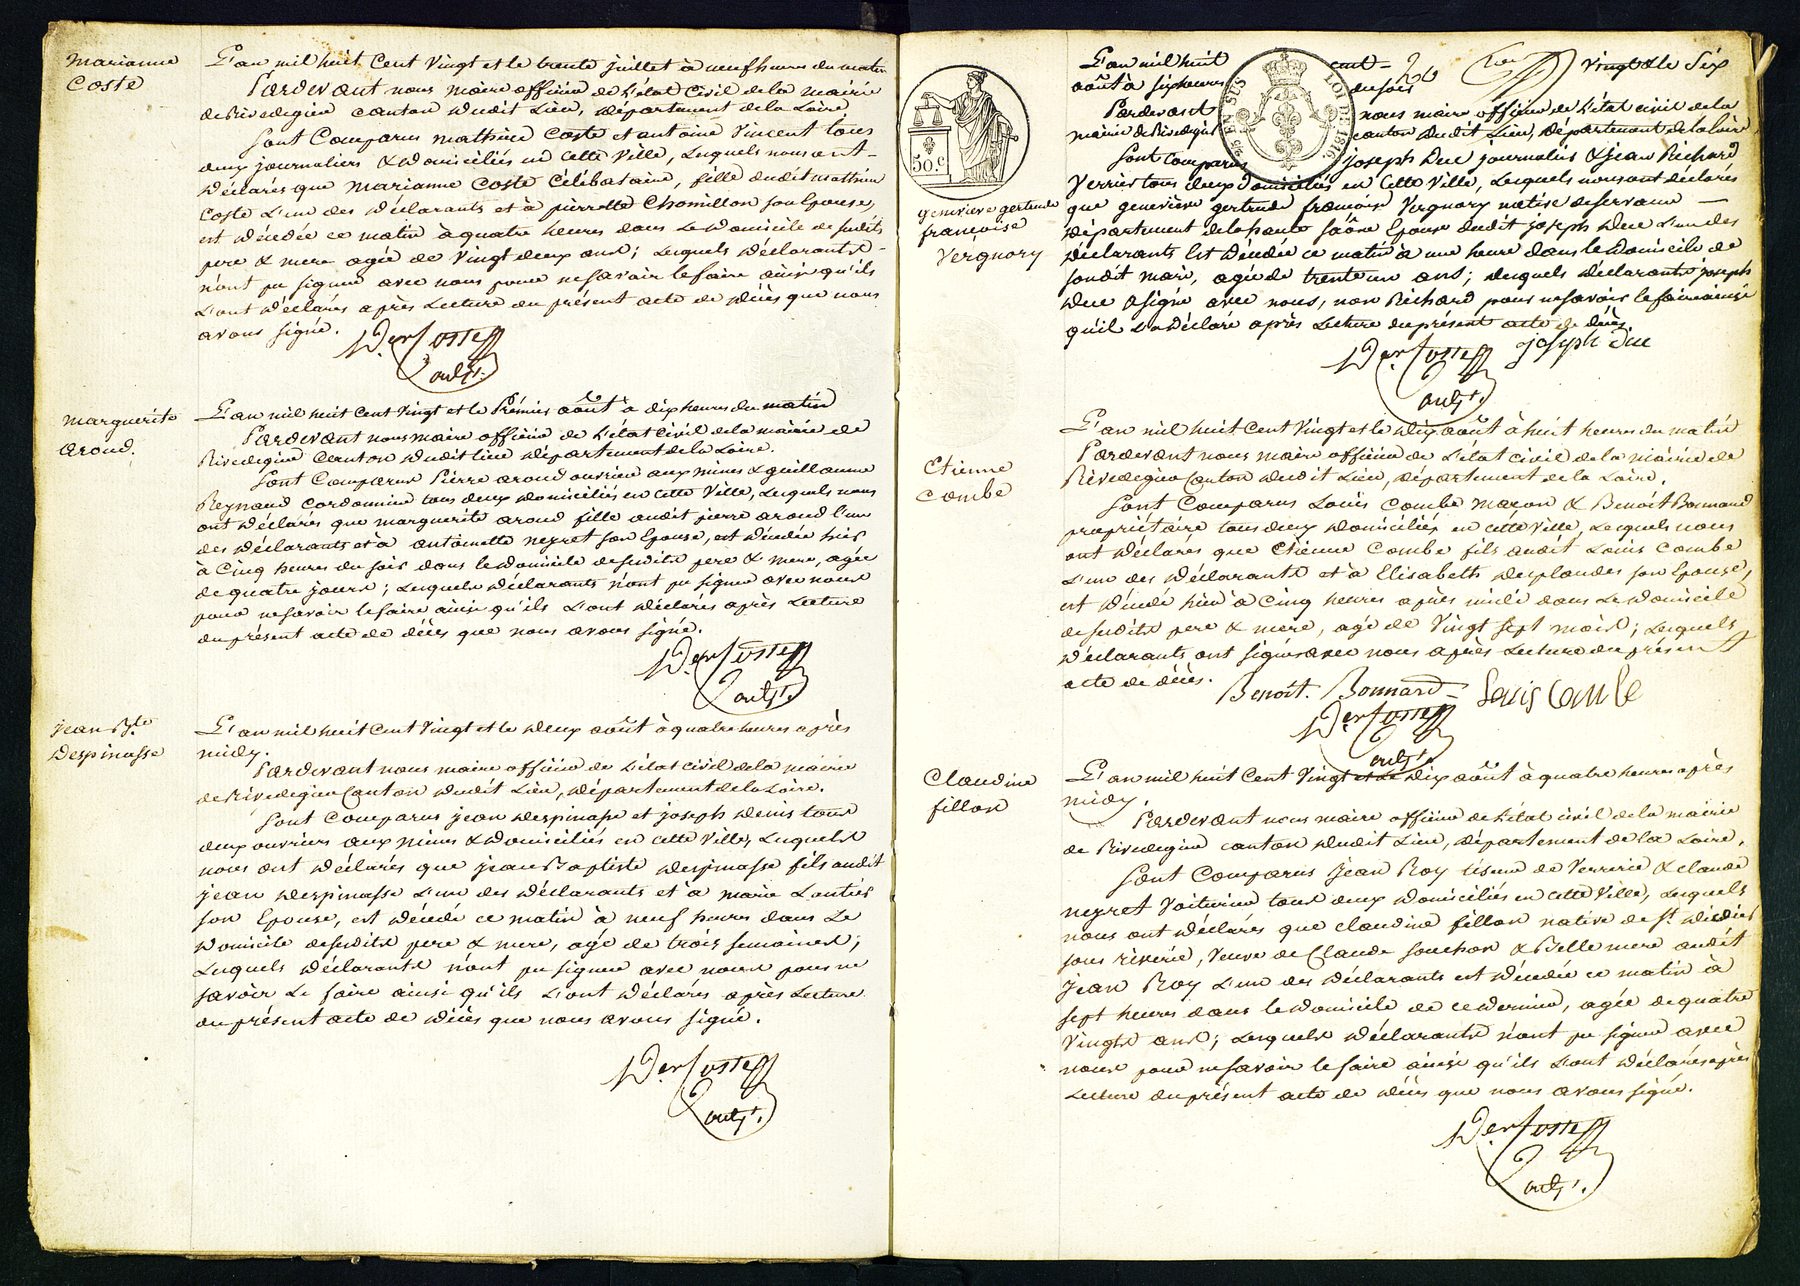 Marianne
Coste
L'an mil huit Cent Vingt et le trente juillet à neuf heures du matin
Pardevant nous maire officier de l'état Civil de la mairie
de Rivedegier canton dudit Lieu, département de la Loire
Sont Comparus mathieu Coste et antoine Vincent tous
deux journaliers & domiciliés en cette Ville, Lesquels nous ont
déclarés que Marianne Coste Célibataire, fille dudit mathieu
Coste L'un des déclarants et à pierrette Chomillon son Epouse,
est décédée ce matin à quatre heures dans Le domicile de susdits
pere & mere agée de Vingt deux ans; Lesquels déclarants
n'ont pu signer avec nous pour ne savoir le faire ainsi qu'ils
L'ont déclarés après Lecture du présent acte de décès que nous
avons signé.
marguerite
aroud.
L'an mil huit Cent Vingt et le Prémier août à dix heures du matin
Pardevant nous maire officier de L'état Civil de la mairie de
Rivedegier Canton dudit lieu département de la Loire.
Sont Comparus Pierre aroud ouvrier aux mines & guillaume
Reynaud Cordonnier tous deux domiciliés en cette Ville, Lesquels nous
ont déclarés que marguerite aroud fille audit pierre aroud l'un
des déclarants et à antoinette neyret son Epouse, est décédée hier
à Cinq heures du soir dans le domicile de susdits pere & mere, agée
de quatre jours; Lesquels déclarants n'ont pu signer avec nous
pour ne savoir le faire ainsi qu'ils L'ont déclarés après Lecture
du présent acte de décès que nous avons signé.
Jean Bte
Despinasse
L'an mil huit Cent Vingt et le deux août à quatre heures après
midy.
Pardevant nous maire officier de L'état Civil de la mairie
de Rivedegier Canton dudit Lieu, département de la Loire.
Sont Comparus jean despinasse et joseph denis tous
deux ouvriers aux mines & domiciliés en cette Ville, Lesquels
nous ont déclarés que jean Baptiste despinasse fils audit
jean despinasse L'un des déclarants et à marie Lentier
son Epouse, est décédé ce matin à neuf heures dans Le
domicile de susdits pere & mere, agé de trois semaines;
Lesquels déclarants n'ont pu signer avec nous pour ne
savoir Le faire ainsi qu'ils L'ont déclarés après Lecture
du présent acte de décès que nous avons signé.
50.c
EN SUS
LOI DE 1816
genevieve gertrude
françoise
Vergnory
L'an mil huit cent Vingt & le Six
août à six heures du soir
Pardevant nous maire officier de L'état civil de la
mairie de Rivedegier canton dudit Lieu, département de la Loire
Sont comparus joseph Duc journalier & jean Richard
Verrier tous deux domiciliés en cette Ville, Lesquels nous ont déclarés
que geneviève gertrude françoise Vergnory native de servance
département de la haute saône Epouse dudit joseph Duc L'un des
déclarants Est décédée ce matin à une heure dans le domicile de
sondit mari, agée de trente un ans; Lesquels déclarants joseph
Duc a signé avec nous, non Richard pour ne savoir le faire ainsi
qu'il L'a déclaré après Lecture du présent acte de décès.
joseph Duc
Etienne
Combe
L'an mil huit Cent Vingt et le dix août à huit heures du matin
Pardevant nous maire officier de L'état civil de la mairie de
Rivedegier Canton dudit Lieu, département de la Loire.
Sont Comparus Louis Combe maçon & Benoit Bonnard
propriétaire tous deux domiciliés en cette Ville, Lesquels nous
ont déclarés que Etienne Combe fils audit Louis Combe
L'un des déclarants et à Elisabeth desplandes son Epouse,
est décédé hier à Cinq heures après midi dans Le domicile
de susdits pere & mere, agé de Vingt sept mois; Lesquels
déclarants ont signés avec nous après Lecture du présent
acte de décès.
Benoit. Bonnard Louis Combe
Claudine
fillon
L'an mil huit Cent Vingt et le dix août à quatre heures après
midy.
Pardevant nous maire officier de L'état civil de la mairie
de Rivedegier canton dudit Lieu, département de la Loire.
Sont Comparus Jean Roy tiseur de Verrerie & claude
neyret Voiturier tous deux domiciliés en cette Ville, Lesquels
nous ont déclarés que claudine fillon native de St. didier
sous riverie, Veuve de Claude souchon & Belle mere audit
Jean Roy L'un des déclarants est décédée ce matin à
sept heures dans le domicile de ce dernier, agée de quatre
Vingts ans; Lesquels déclarants n'ont pu signer avec
nous pour ne savoir le faire ainsi qu'ils L'ont déclarés après
Lecture du présent acte de décès que nous avons signé.